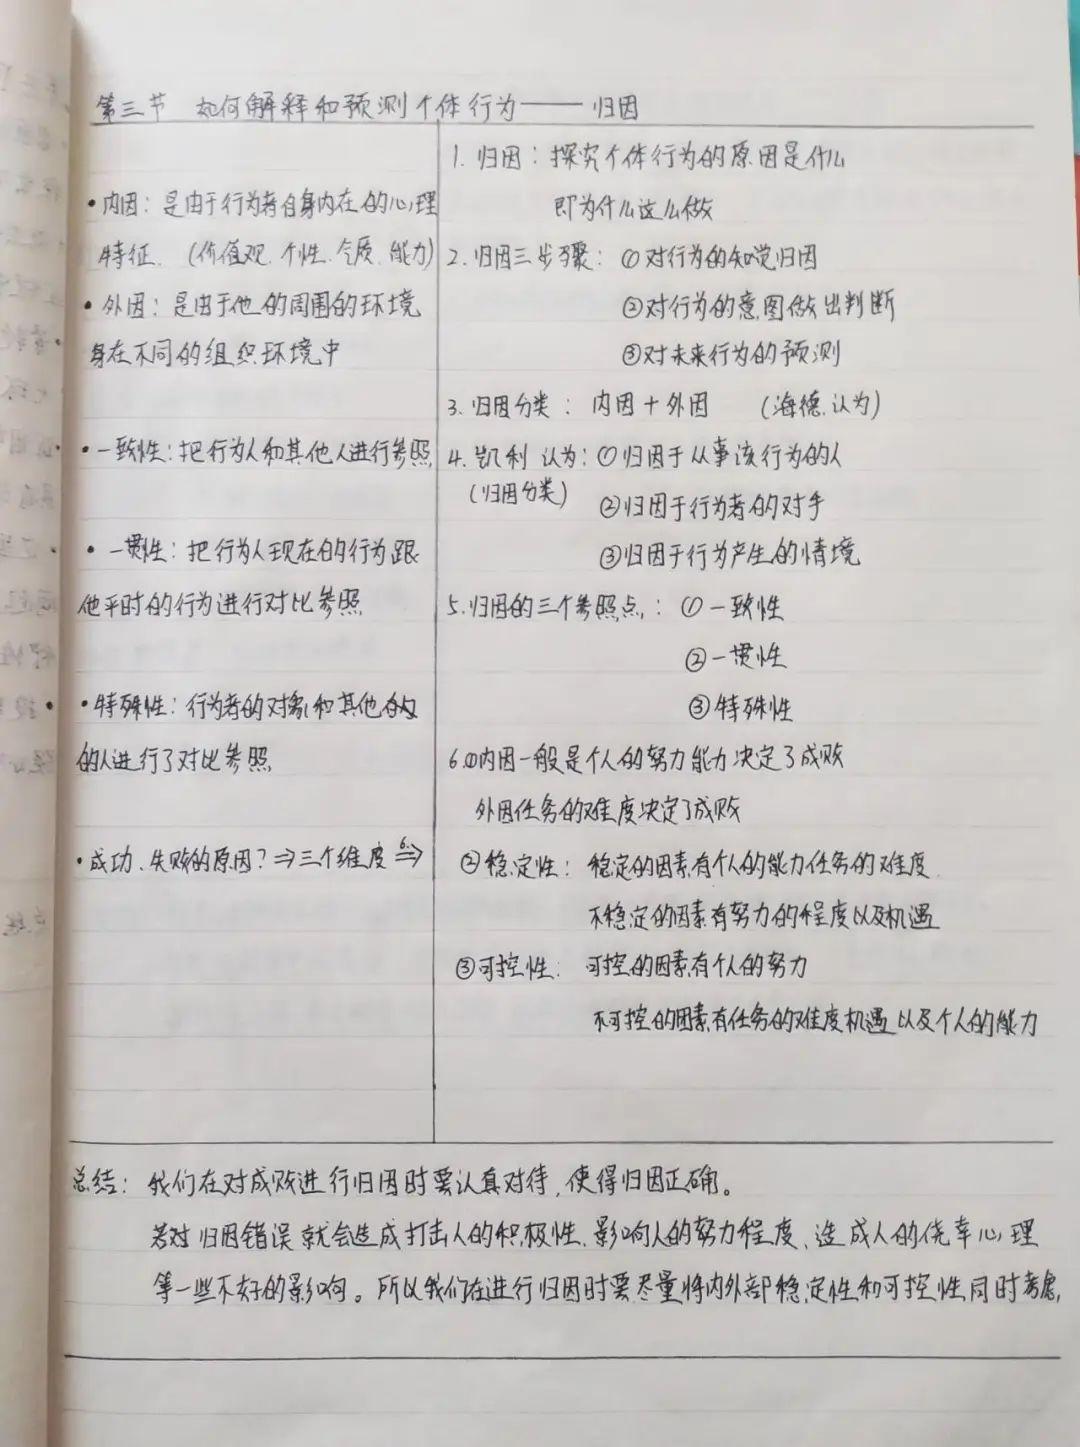 第三节 如何解释和预测个体行为——归因
• 内因：是由于行为者自身内在的心理
特征.（价值观.个性.气质.能力）
• 外因：是由于他的周围的环境
身在不同的组织环境中
• 一致性：把行为人和其他人进行参照
• 一贯性：把行为人现在的行为跟
他平时的行为进行对比参照
• 特殊性：行为者的对象和其他
的人进行了对比参照
• 成功、失败的原因？⇒三个维度 6.⇒
1. 归因：探究个体行为的原因是什么
即为什么这么做
2. 归因三步骤：①对行为的知觉归因
②对行为的意图做出判断
③对未来行为的预测
3. 归因分类：内因+外因 （海德.认为）
4. 凯利 认为：①归因于从事该行为的人
（归因分类） ②归因于行为者的对手
③归因于行为产生的情境
5. 归因的三个参照点：①一致性
②一贯性
③特殊性
6.①内因一般是个人的努力能力决定了成败
外因任务的难度决定了成败
②稳定性：稳定的因素有个人的能力任务的难度
不稳定的因素有努力的程度以及机遇
③可控性：可控的因素有个人的努力
不可控的因素有任务的难度机遇以及个人的能力
总结：我们在对成败进行归因时要认真对待，使得归因正确。
若对归因错误就会造成打击人的积极性、影响人的努力程度、造成人的侥幸心理
等一些不好的影响。所以我们在进行归因时要尽量将内外部稳定性和可控性同时考虑，